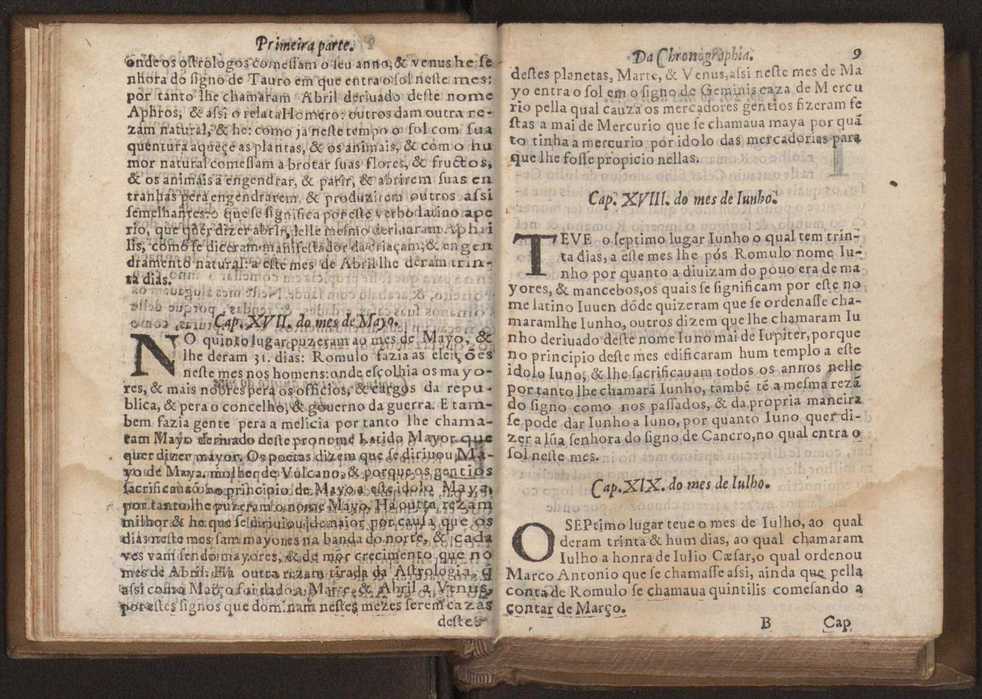 Primeira parte.
onde os ostrologos comessam o seu anno, & venus he se
nhora do signo de Tauro em que entra o sol neste mes:
por tanto lhe chamaram Abril deriuado deste nome
Aphros, & assi o relata Homero: outros dam outra re-
zam natural, & he: como ja neste tempo o sol com sua
quentura aqueçe as plantas, & os animais, & com o hu
mor natural comessam a brotar suas flores, & fructos,
& os animais a engendrar, & parir, & abrirem suas en
tranhas pera engendrarem, & produzirem outros assi
semelhantes: o que se significa por este verbo ladino ape
rio, que quer dizer abrir, delle mesmo deriuaram Aphri
lis, como se diceram manifestador da criaçam, & engen
dramento natural: a este mes de Abril lhe deram trin-
ta dias.
Cap. XVII. do mes de Mayo.
NO quinto lugar puzeram ao mes de Mayo, &
lhe deram 31. dias: Romulo fazia as eleições
neste mes nos homens: onde escolhia os mayo-
res, & mais nobres pera os officios, & cargos da repu-
blica, & pera o concelho, & gouerno da guerra. E tam-
bem fazia gente pera a melicia por tanto lhe chama-
ram Mayo deriuado deste pronome latido Mayor que
quer dizer mayor. Os poetas dizem que se diriuou Ma-
yo de Maya. molher de Vulcano, & porque os gentios
sacrificauão no principio de Mayo a este idolo Maya,
por tanto lhe puzeram o nome Mayo. Ha outra rezam
milhor & he que se diriuiou de maior por caula que os
dias neste mes sam mayores na banda do norte, & cada
ves vam sendo mayores, & de mór crecimento que no
mes de Abril. Ha outra rezam tirada da Astrologia, q
assi como Março foi dado a Marte, & Abril a Venus,
por estes signos que dominam nestes mezes serem cazas
destes
Da Chronographia. 9
destes planetas, Marte, & Venus, assi neste mes de Ma
yo entra o sol em o signo de Geminis caza de Mercu
rio pella qual cauza os mercadores gentios fizeram fe
stas a mai de Mercurio que se chamaua maya por quã
to tinha a mercurio por idolo das mercadorias para
que lhe fosse propicio nellas.
Cap. XVIII. do mes de Iunho.
TEVE o septimo lugar Iunho o qual tem trin-
ta dias, a este mes lhe pós Romulo nome Iu-
nho por quanto a diuizam do pouo era de ma
yores, & mancebos, os quais se significam por este no
me latino Iuuen dóde quizeram que se ordenasse cha-
maramlhe Iunho, outros dizem que lhe chamaram Iu
nho deriuado deste nome Iuno mai de Iupiter, porque
no principio deste mes edificaram hum templo a este
idolo Iuno, & lhe sacrificauam todos os annos nelle
por tanto lhe chamarã Iunho, tambẽ tẽ a mesma rezã
do signo como nos passados, & da propria maneira
se pode dar Iunho a Iuno, por quanto Iuno quer di-
zer a lúa senhora do signo de Cancro, no qual entra o
sol neste mes.
Cap. XIX. do mes de Iulho.
O SEPtimo lugar teue o mes de Iulho, ao qual
deram trinta & hum dias, ao qual chamaram
Iulho a honra de Iulio Cæsar, o qual ordenou
Marco Antonio que se chamasse assi, ainda que pella
conta de Romulo se chamaua quintilis comesando a
contar de Março.
B Cap